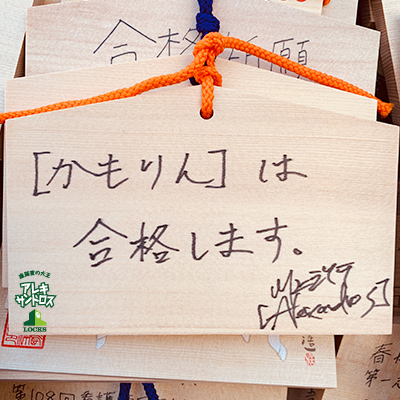 合格祈願
[かもりん]は
合格します。
[Alexandros]
歯国家の大王
アレキ
サンドロス
LOCKS
浩一
春
第一志
第108回看護